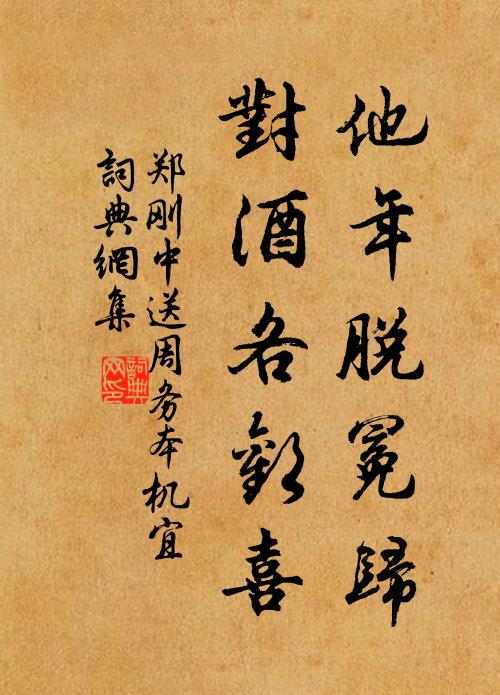 他年脱冕歸
對酒各歡喜
郑刚中送周务本机宜
詞典網集
詞典网印